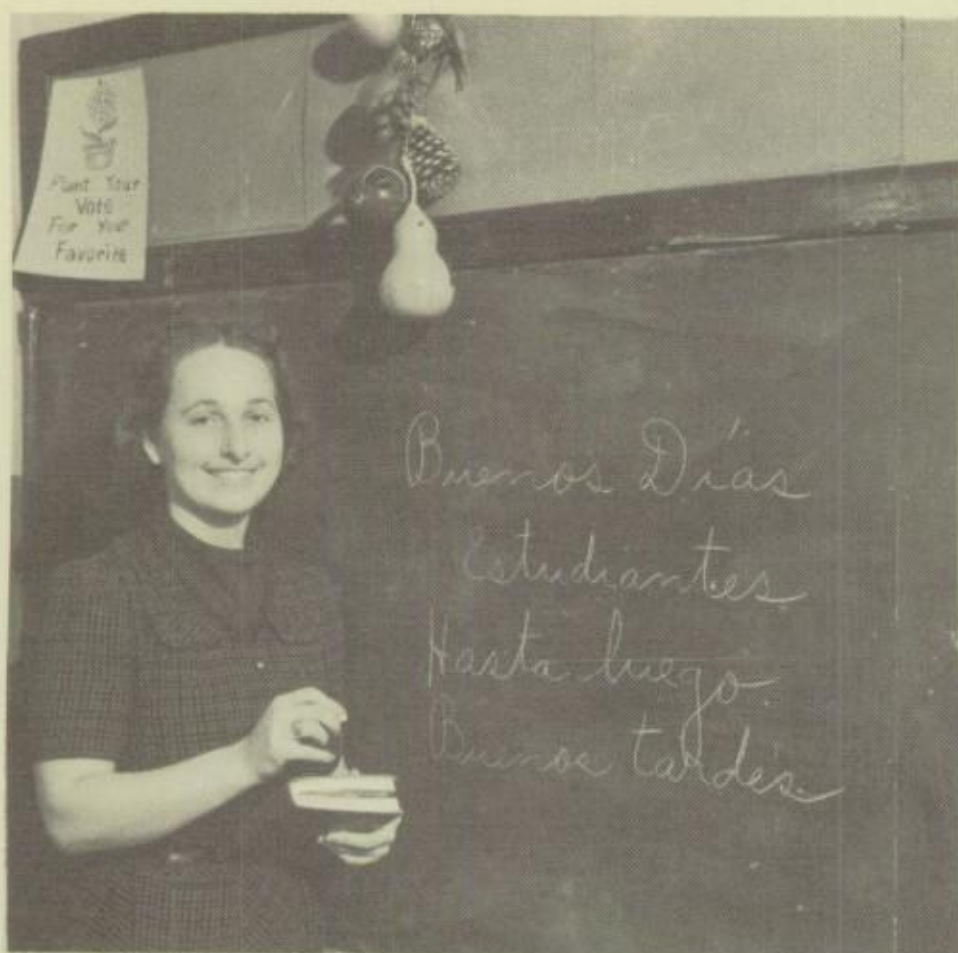 Plant Your
Vote
For Your
Favorite
Buenos Días
Estudiantes
Hasta luego
Buenos tardes